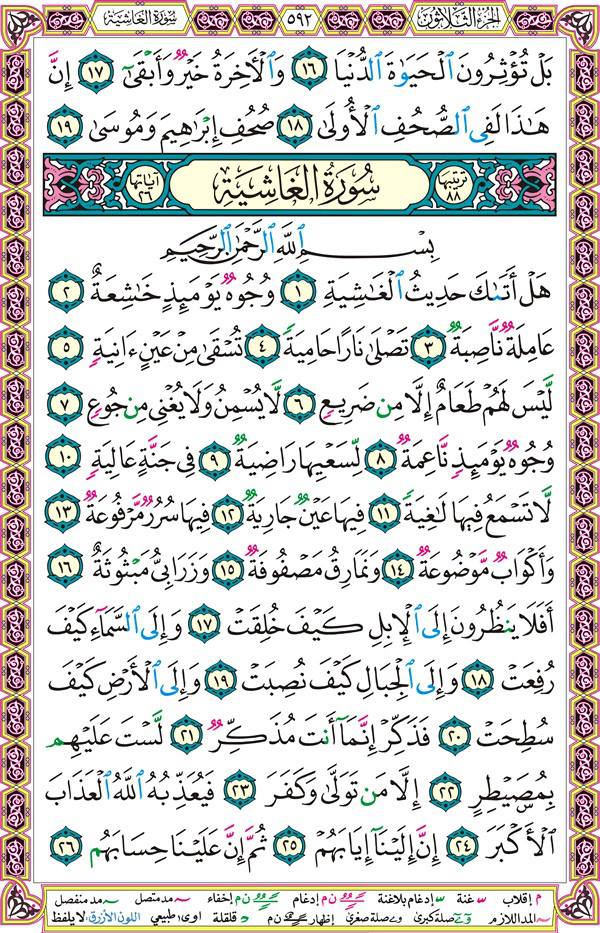 سورة الغاشية
٥٩٢
الجزء الثلاثون
بَلْ تُؤْثِرُونَ ٱلْحَيَوٰةَ ٱلدُّنْيَا ١٦ وَٱلْـَٔاخِرَةُ خَيْرٌ وَأَبْقَىٰٓ ١٧ إِنَّ
هَـٰذَا لَفِى ٱلصُّحُفِ ٱلْأُولَىٰ ١٨ صُحُفِ إِبْرَٰهِيمَ وَمُوسَىٰ ١٩
ترتيبها ٨٨ سُورَةُ الغَاشِيَةِ آياتها ٢٦
بِسْمِ ٱللَّهِ ٱلرَّحْمَـٰنِ ٱلرَّحِيمِ
هَلْ أَتَىٰكَ حَدِيثُ ٱلْغَـٰشِيَةِ ١ وُجُوهٌ يَوْمَئِذٍ خَـٰشِعَةٌ ٢
عَامِلَةٌ نَّاصِبَةٌ ٣ تَصْلَىٰ نَارًا حَامِيَةً ٤ تُسْقَىٰ مِنْ عَيْنٍ ءَانِيَةٍ ٥
لَّيْسَ لَهُمْ طَعَامٌ إِلَّا مِن ضَرِيعٍ ٦ لَّا يُسْمِنُ وَلَا يُغْنِى مِن جُوعٍ ٧
وُجُوهٌ يَوْمَئِذٍ نَّاعِمَةٌ ٨ لِّسَعْيِهَا رَاضِيَةٌ ٩ فِى جَنَّةٍ عَالِيَةٍ ١٠
لَّا تَسْمَعُ فِيهَا لَـٰغِيَةً ١١ فِيهَا عَيْنٌ جَارِيَةٌ ١٢ فِيهَا سُرُرٌ مَّرْفُوعَةٌ ١٣
وَأَكْوَابٌ مَّوْضُوعَةٌ ١٤ وَنَمَارِقُ مَصْفُوفَةٌ ١٥ وَزَرَابِىُّ مَبْثُوثَةٌ ١٦
أَفَلَا يَنظُرُونَ إِلَى ٱلْإِبِلِ كَيْفَ خُلِقَتْ ١٧ وَإِلَى ٱلسَّمَآءِ كَيْفَ
رُفِعَتْ ١٨ وَإِلَى ٱلْجِبَالِ كَيْفَ نُصِبَتْ ١٩ وَإِلَى ٱلْأَرْضِ كَيْفَ
سُطِحَتْ ٢٠ فَذَكِّرْ إِنَّمَآ أَنتَ مُذَكِّرٌ ٢١ لَّسْتَ عَلَيْهِم
بِمُصَيْطِرٍ ٢٢ إِلَّا مَن تَوَلَّىٰ وَكَفَرَ ٢٣ فَيُعَذِّبُهُ ٱللَّهُ ٱلْعَذَابَ
ٱلْأَكْبَرَ ٢٤ إِنَّ إِلَيْنَآ إِيَابَهُمْ ٢٥ ثُمَّ إِنَّ عَلَيْنَا حِسَابَهُم ٢٦
م إقلاب غنة إدغام بلاغنة ن م إدغام ن م إخفاء مد متصل مد منفصل
المد اللازم صلة كبرى صلة صغرى إظهار ن م قلقلة اوى: طبيعي اللون الأزرق: لا يلفظ